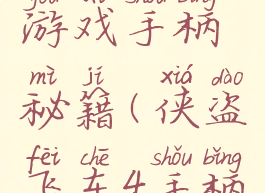 yóu xì shǒu bǐng
游戏手柄
mì jí xiá dào
秘籍(侠盗
fēi chē shǒu bǐng
飞车4手柄